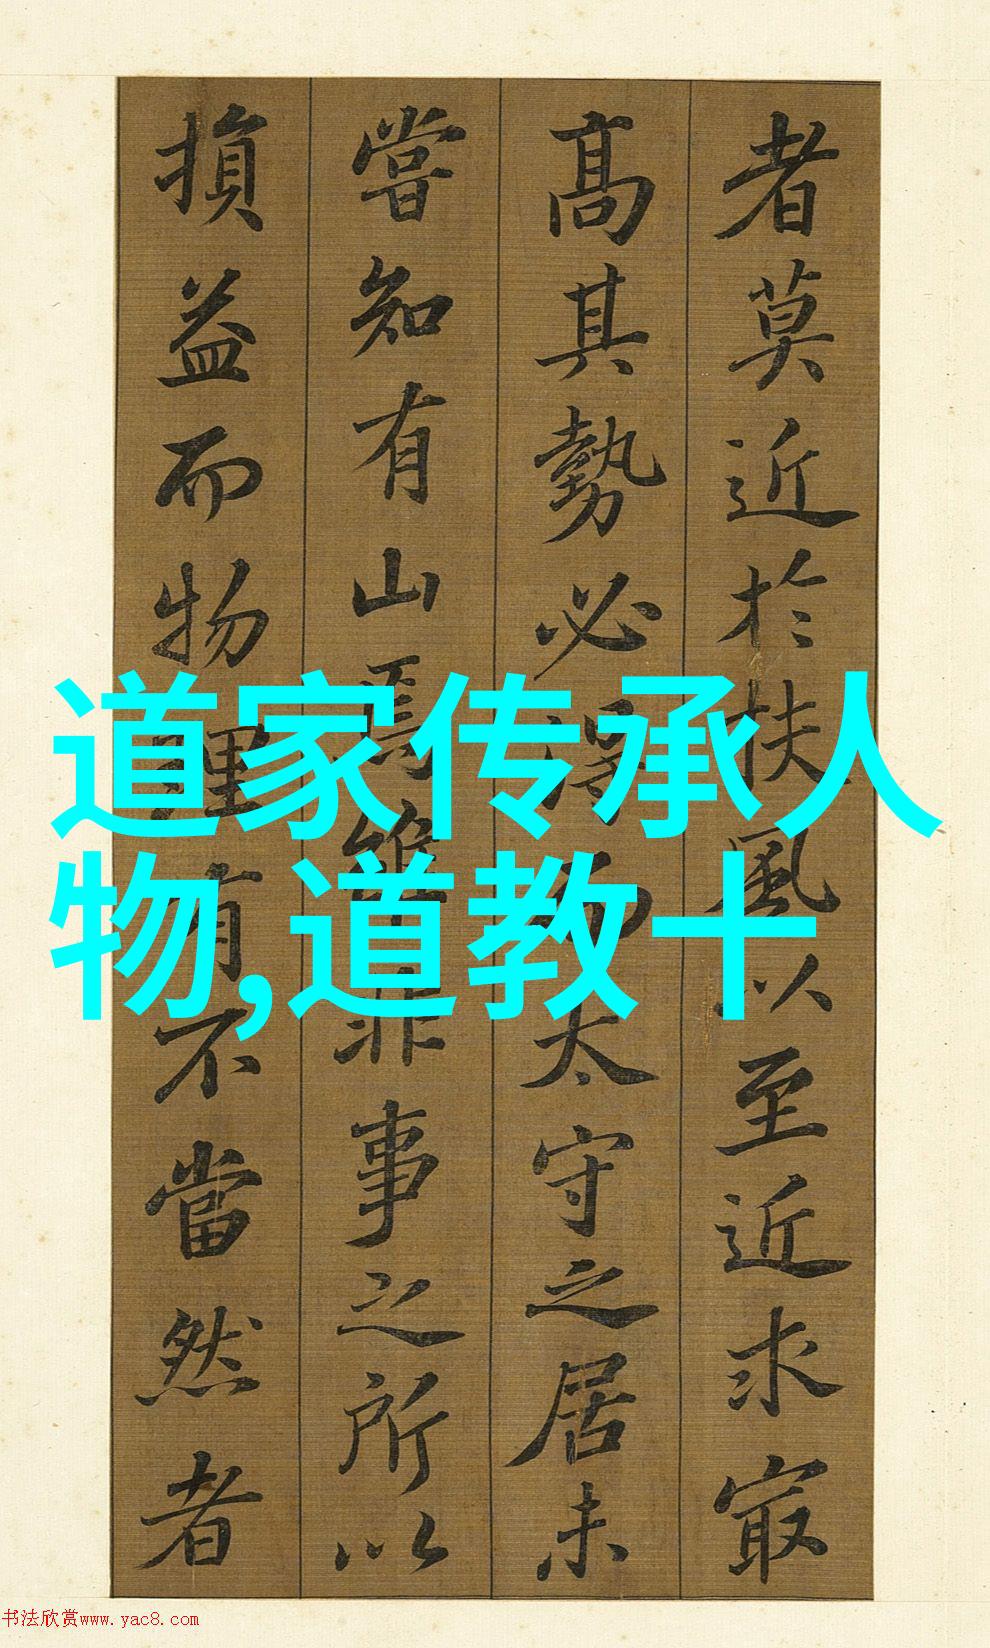 者莫近於扶風以至近求宷
高其勢必得而太守之居未
嘗知有山焉雖非事之所以
損益而物理有不當然者
道家传承人
物,道教十
书法欣赏www.yac8.com